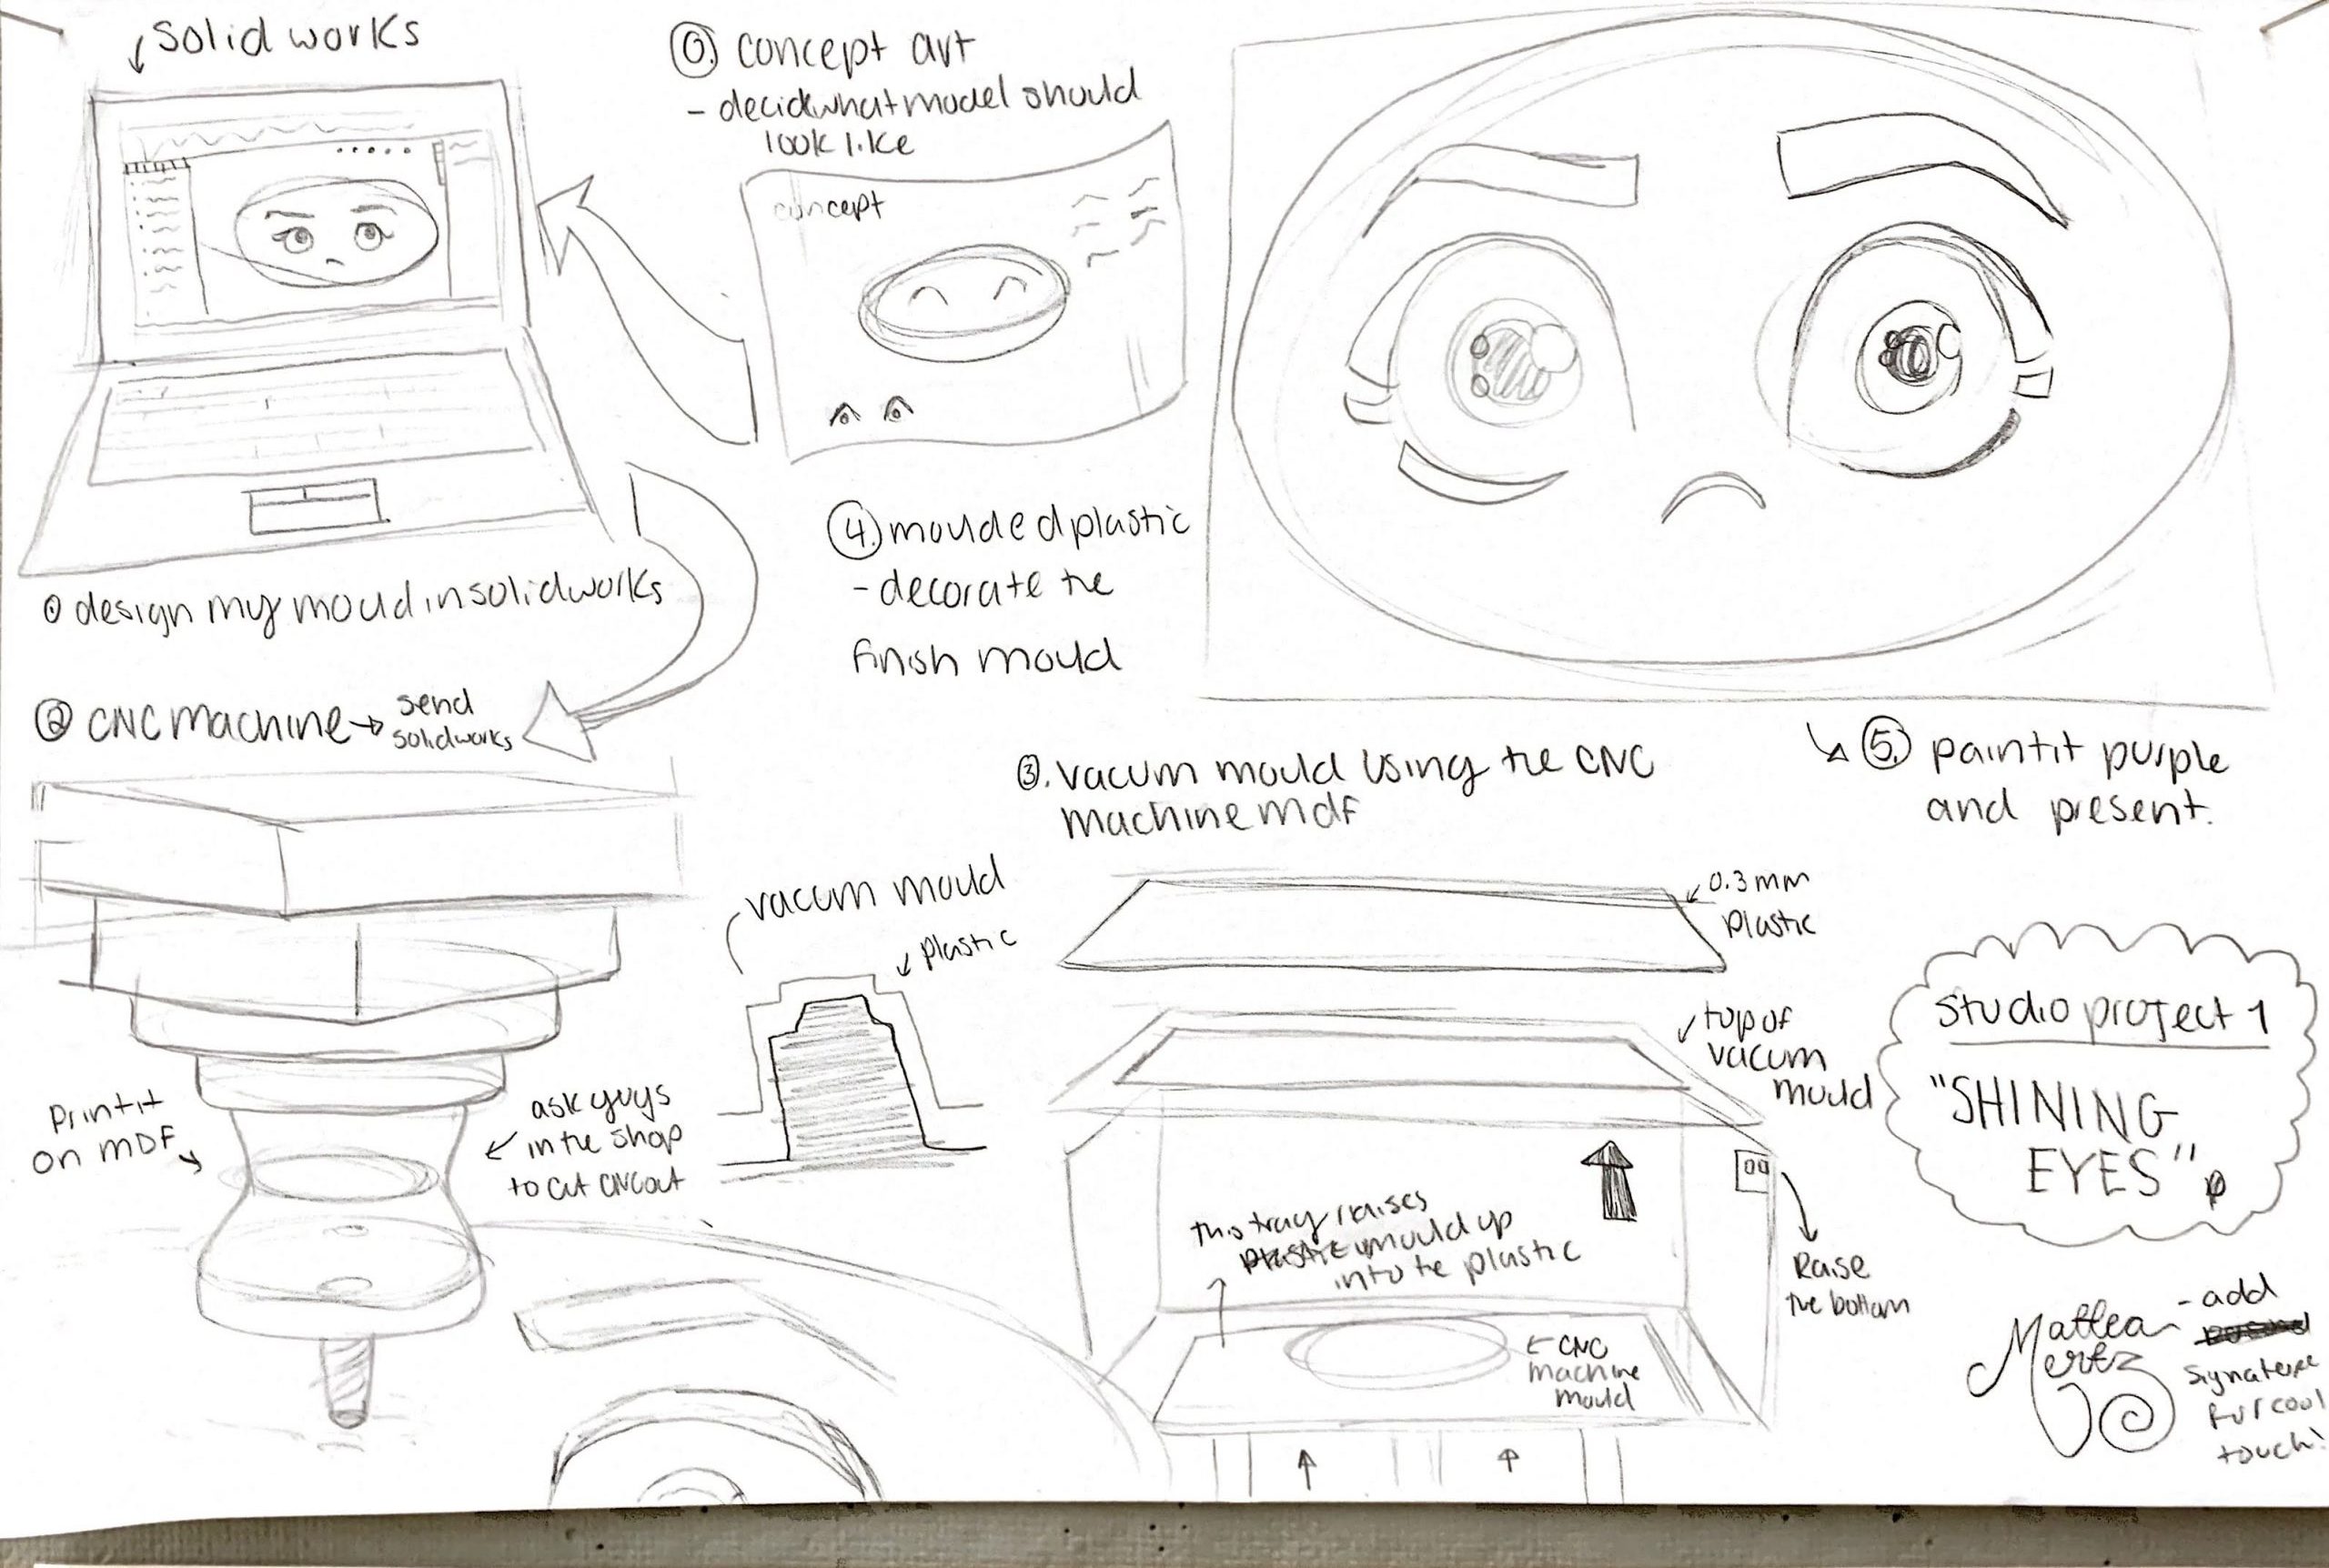 solid works
0. concept art
- decid what model should
look like
concept
1 design my mould in solidworks
2 CNC machine → send
solidworks
print it
on MDF
ask guys
in the shop
to cut CNC out
3. vacum mould using the CNC
machine mdf
vacum mould
plastic
0.3mm
plastic
top of
vacum
mould
this tray raises
mould up
into te plastic
← CNC
machine
mould
Raise
the bottom
4. moulded plastic
- decorate the
finish mould
5. paint it purple
and present.
studio project 1
"SHINING
EYES"
Mattea
Mertz
- add
signature
for cool
touch!